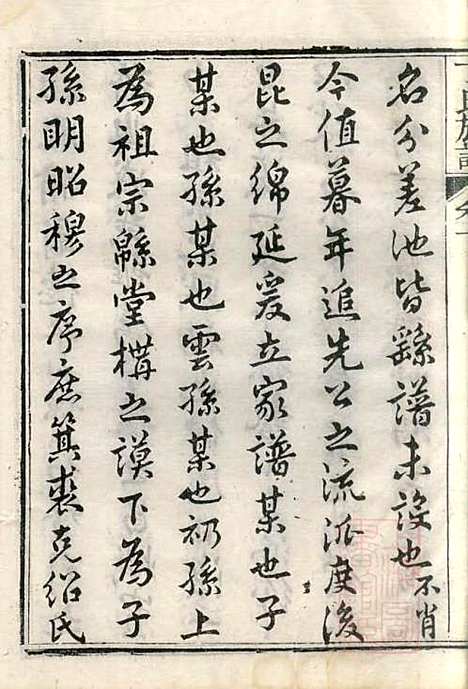 名分差池皆繇譜未設也不肖
今值暮年追先公之流派度後
昆之綿延爰立家譜某也子
某也孫某也雲孫某也礽孫上
為祖宗緜堂構之謨下為子
孫明昭穆之序庶箕裘克紹氏